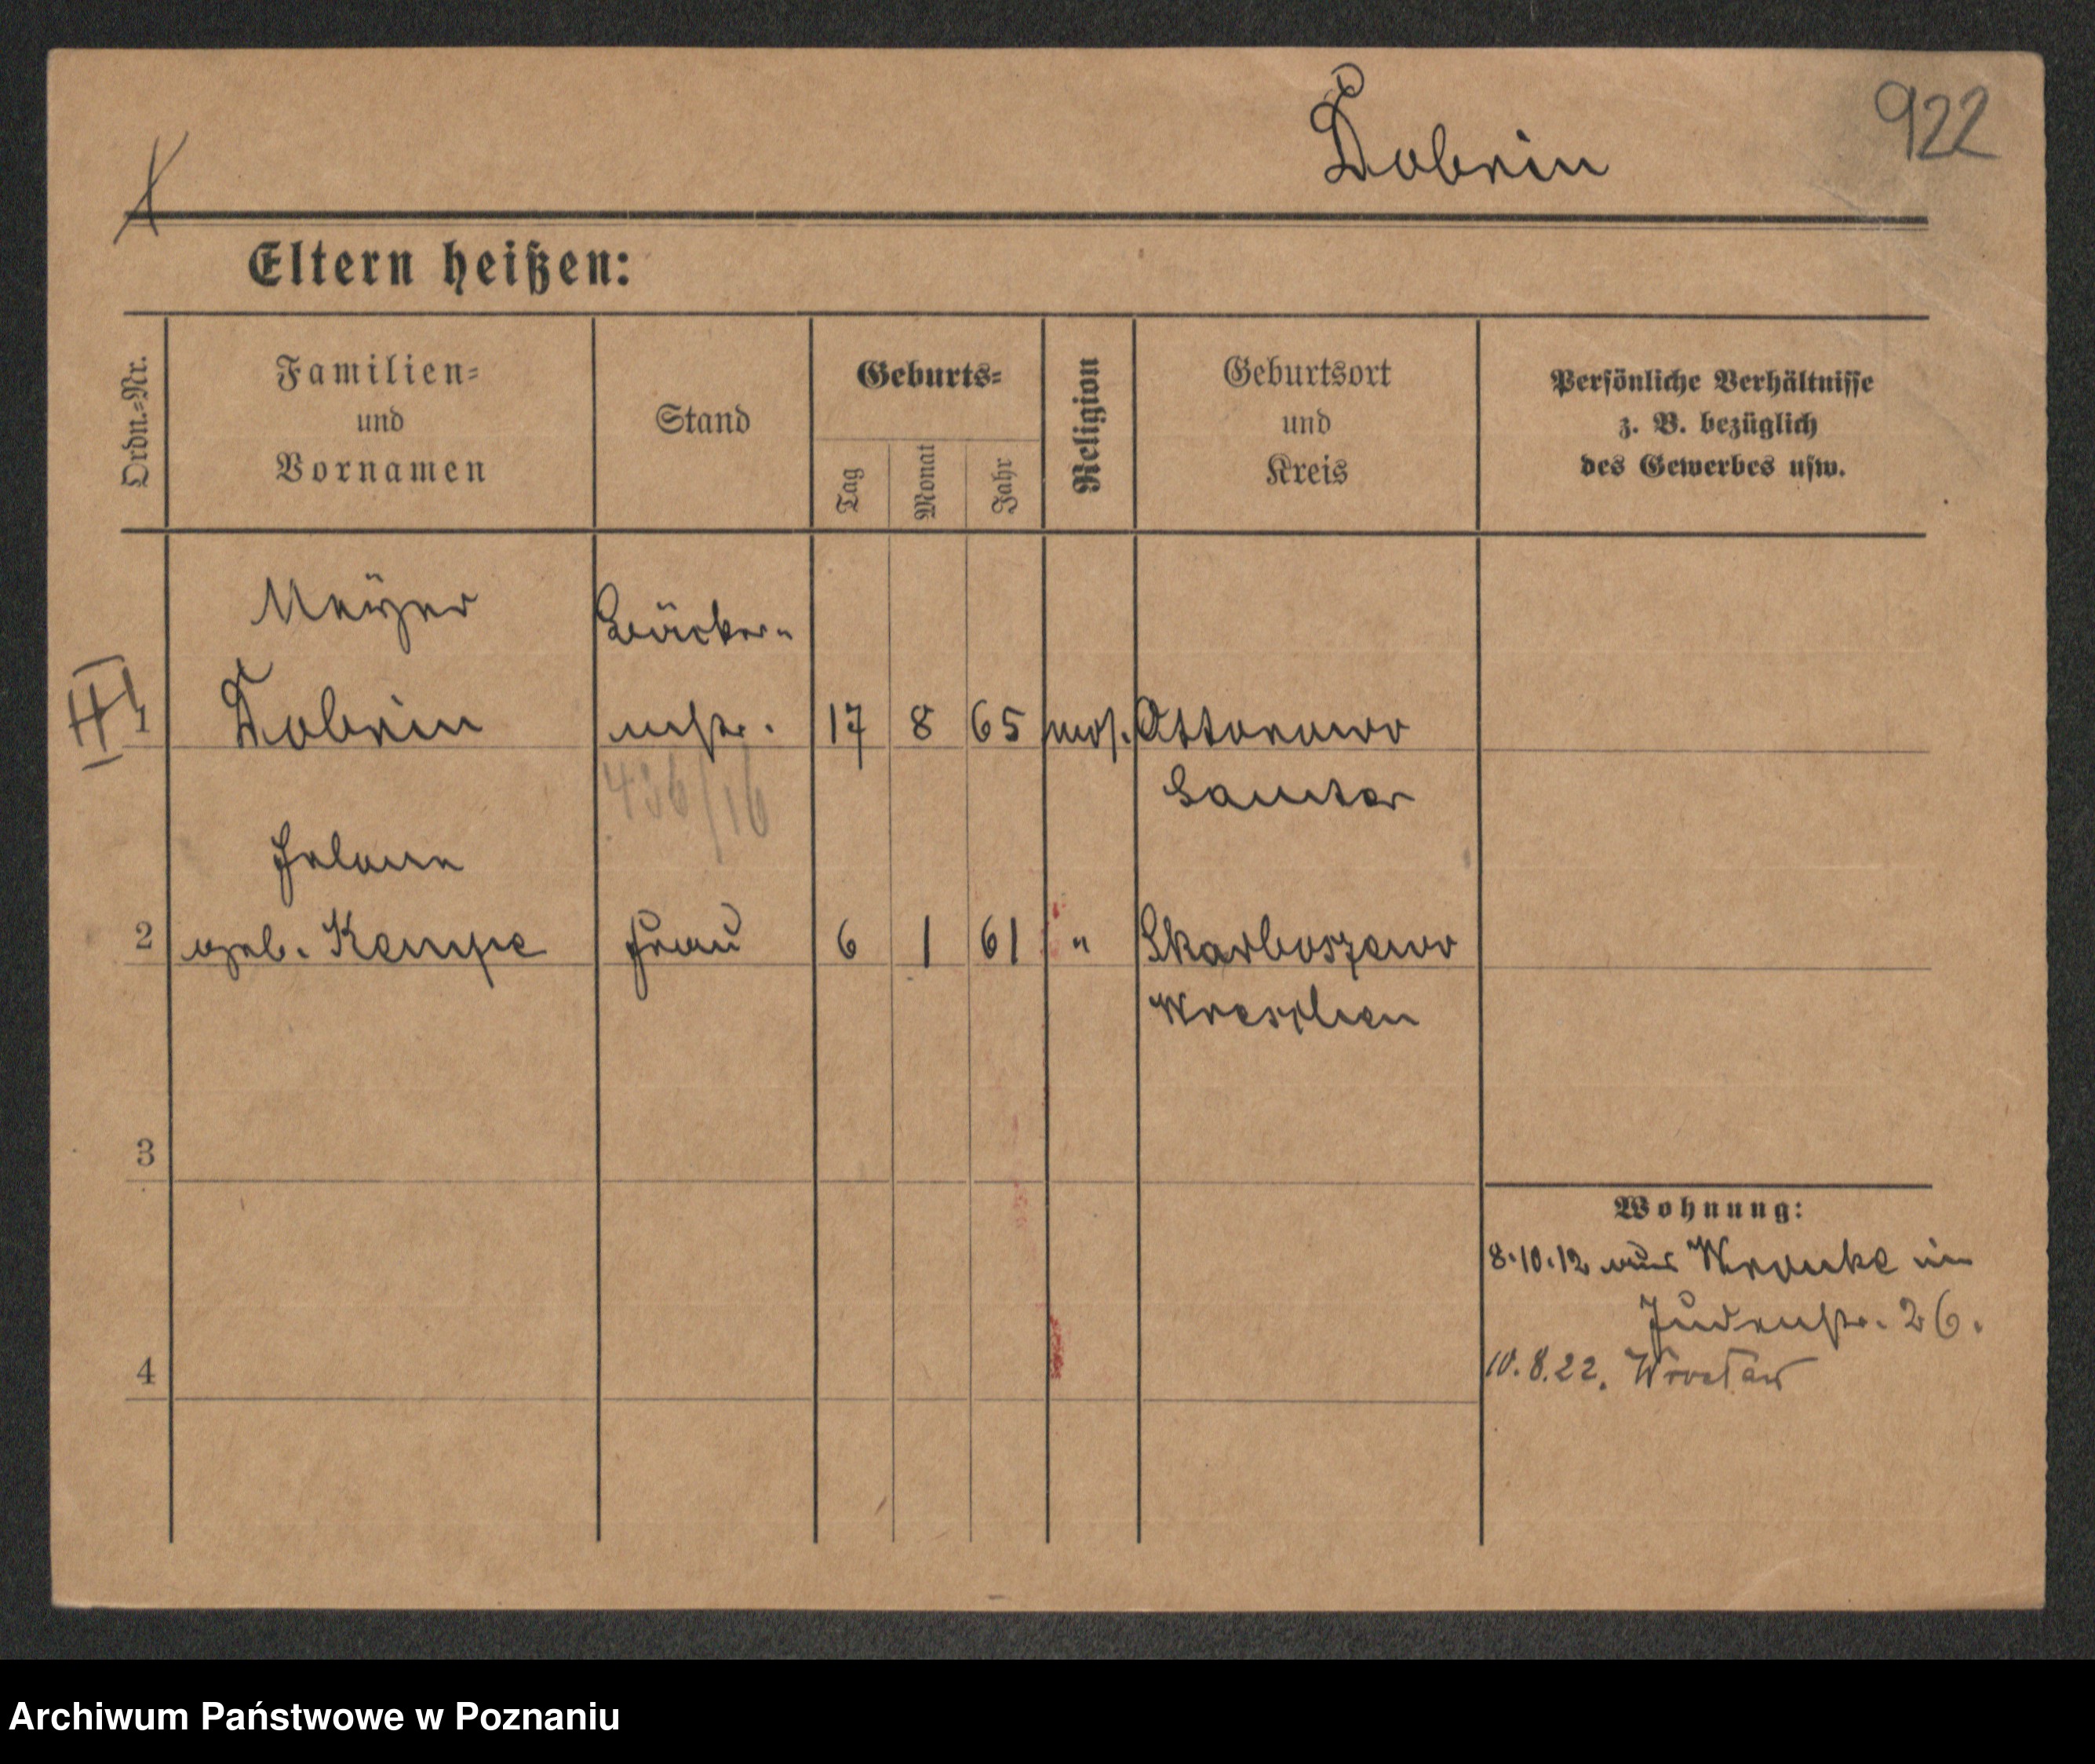 922
Dobrin
Eltern heißen:
Ordn.=Nr.
Familien=
und
Vornamen
Stand
Geburts=
Tag
Monat
Jahr
Religion
Geburtsort
und
Kreis
Persönliche Verhältnisse
z. B. bezüglich
des Gewerbes usw.
Meÿer Bäcker-
1 Dobrin mstr. 17 8 65 mos. Ottorowo
436/16 Samter
Helene
2 geb. Kempe Frau 6 1 61 " Skarboszewo
Wreschen
3
Wohnung:
8.10.12 aus Wronke in
Judenstr. 26.
4 10.8.22. Wrocław
Archiwum Państwowe w Poznaniu